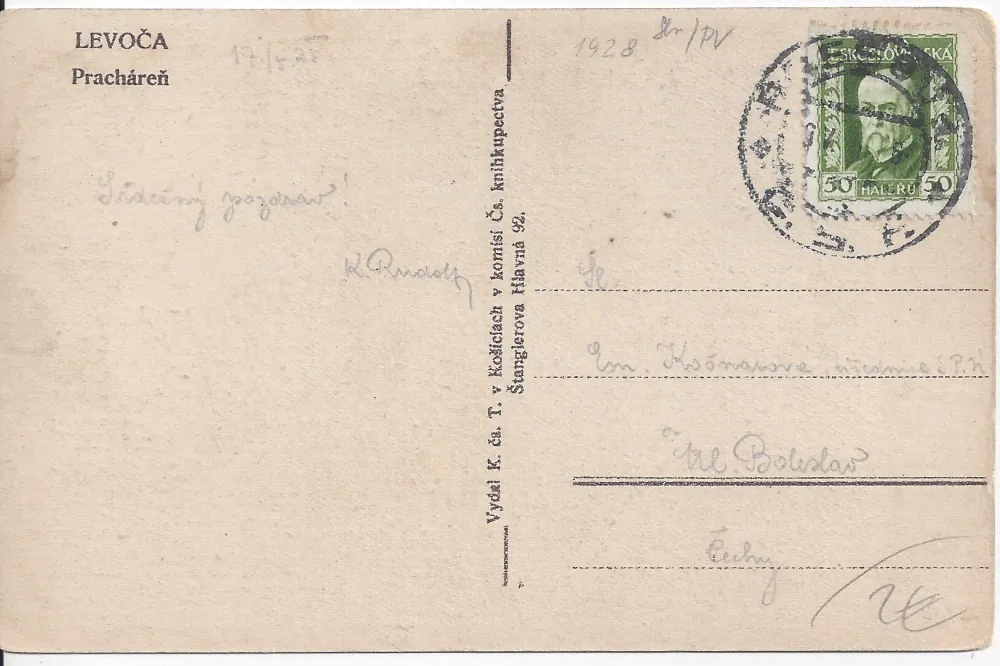 LEVOČA
Pracháreň
17/5 28
1928
Slv/PV
ČESKOSLOVENSKÁ
50 HALÉŘŮ 50
Srdečný pozdrav!
K. Rudolf
Vydal K. čs. T. v Košiciach v komisí Čs. knihkupectva
Štanglerova Hlavná 92.
Sl.
Em. Košnarová
Ml. Boleslav
Čechy